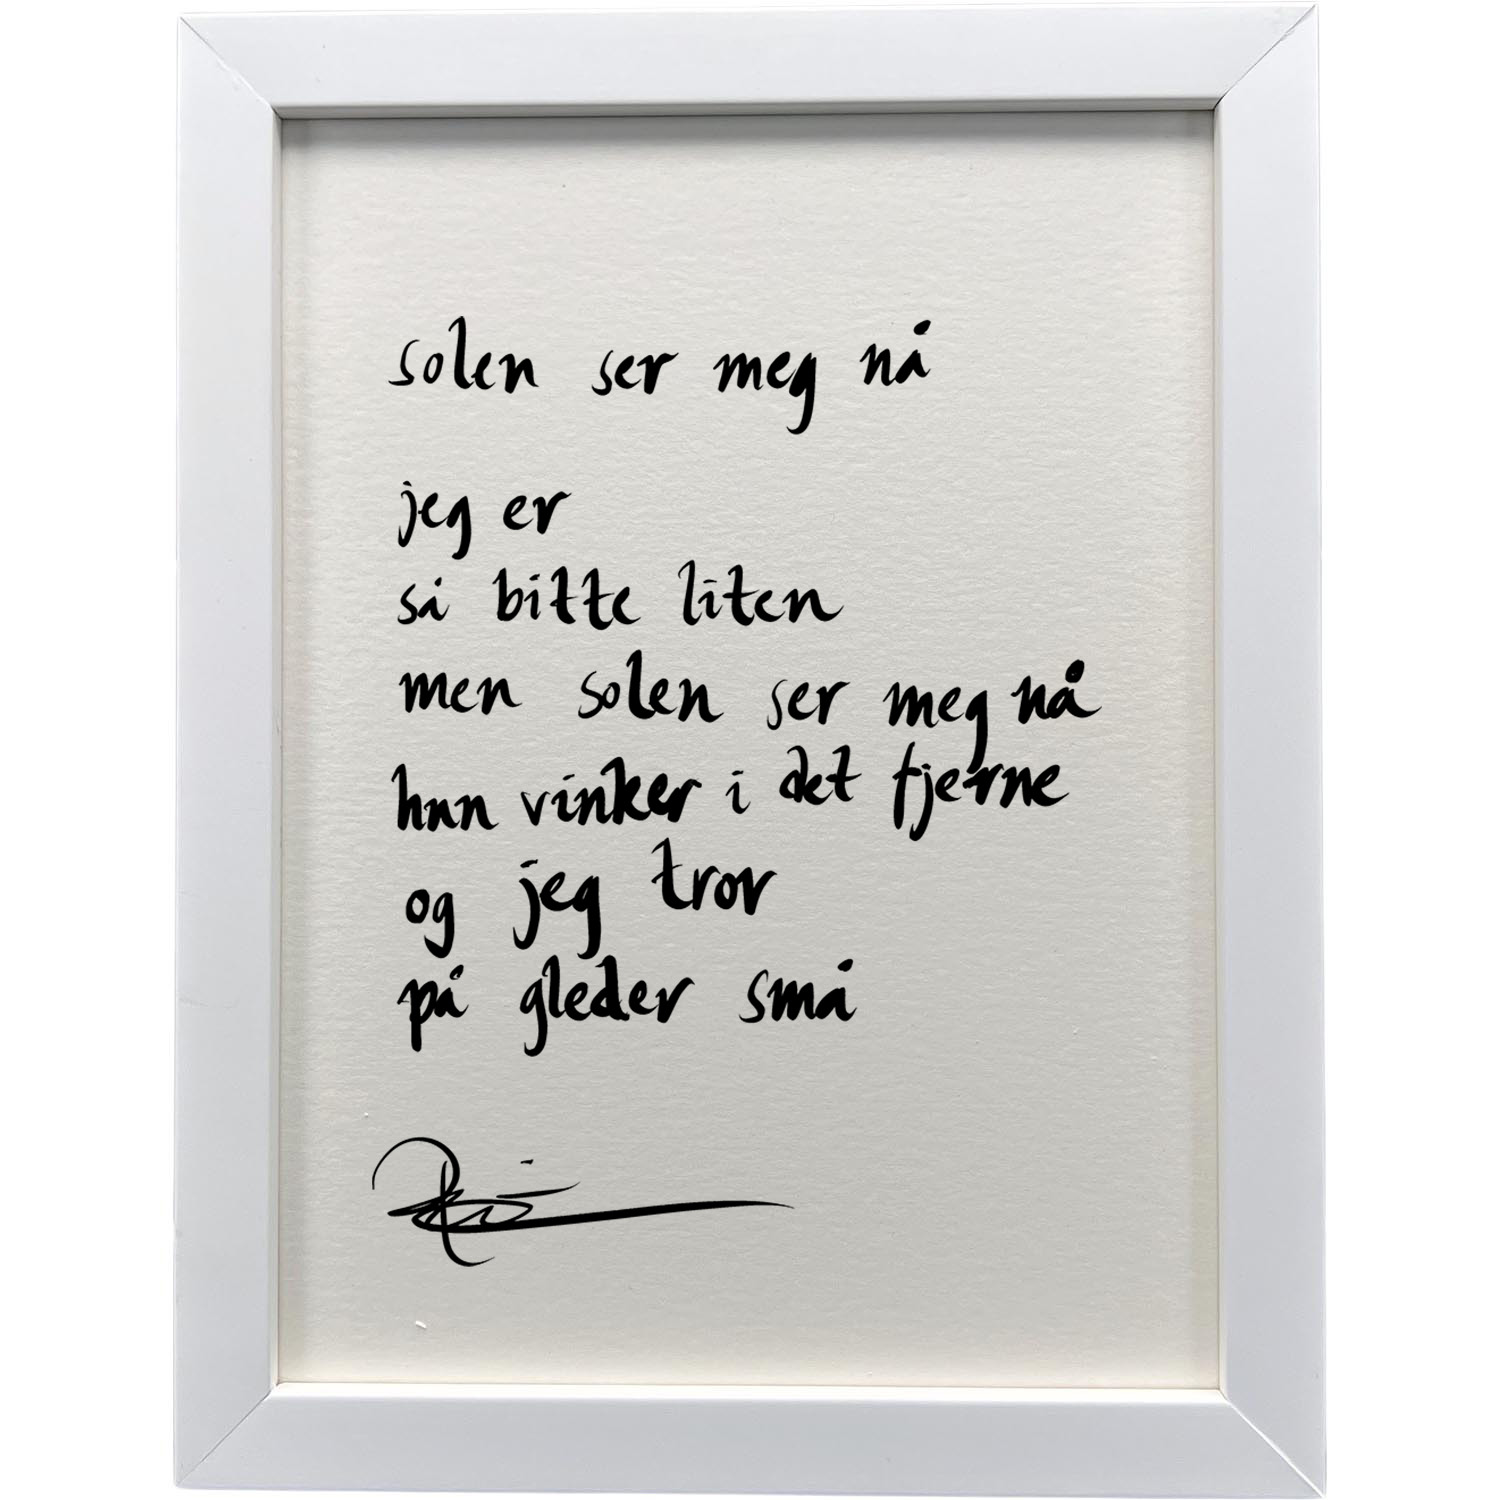 solen ser meg nå
jeg er
så bitte liten
men solen ser meg nå
hun vinker i det fjerne
og jeg tror
på gleder små